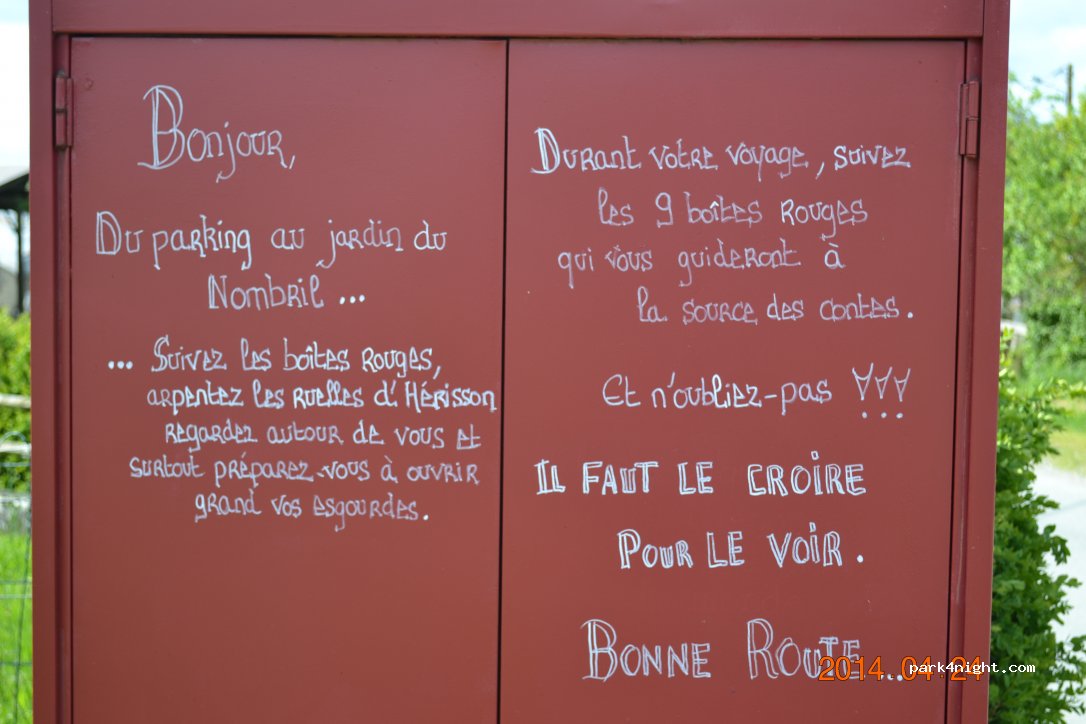 Bonjour,
Du parking au jardin du
Nombril ...
... Suivez les boîtes rouges,
arpentez les ruelles d'Hérisson
regardez autour de vous et
surtout préparez-vous à ouvrir
grand vos esgourdes.
Durant votre voyage, suivez
les 9 boîtes rouges
qui vous guideront à
la source des contes.
Et n'oubliez-pas !!!
IL FAUT LE CROIRE
POUR LE VOIR.
BONNE ROUTE...
2014.04.24
park4night.com